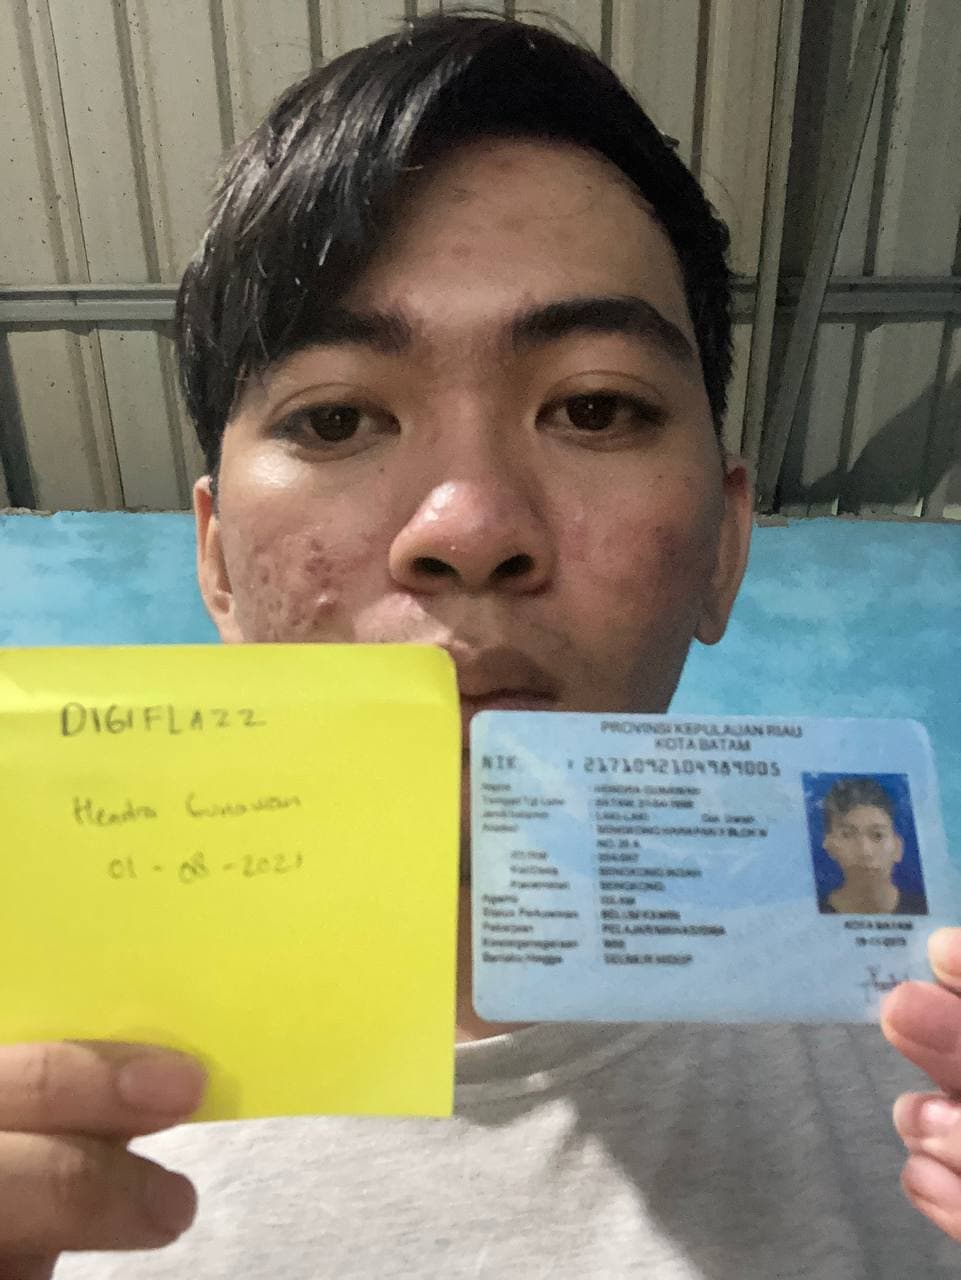 DIGIFLAZZ
Hendra Gunawan
01 - 08 - 2021
PROVINSI KEPULAUAN RIAU
KOTA BATAM
NIK : 2171092104989005
Nama : HENDRA GUNAWAN
Tempat/Tgl Lahir : BATAM,
Jenis Kelamin : LAKI-LAKI Gol. Darah
Alamat : BENGKONG HARAPAN II BLOK
RT/RW
Kel/Desa : BENGKONG INDAH
Kecamatan : BENGKONG
Agama : ISLAM
Status Perkawinan : BELUM KAWIN
Pekerjaan : PELAJAR/MAHASISWA
Kewarganegaraan : WNI
Berlaku Hingga : SEUMUR HIDUP
KOTA BATAM